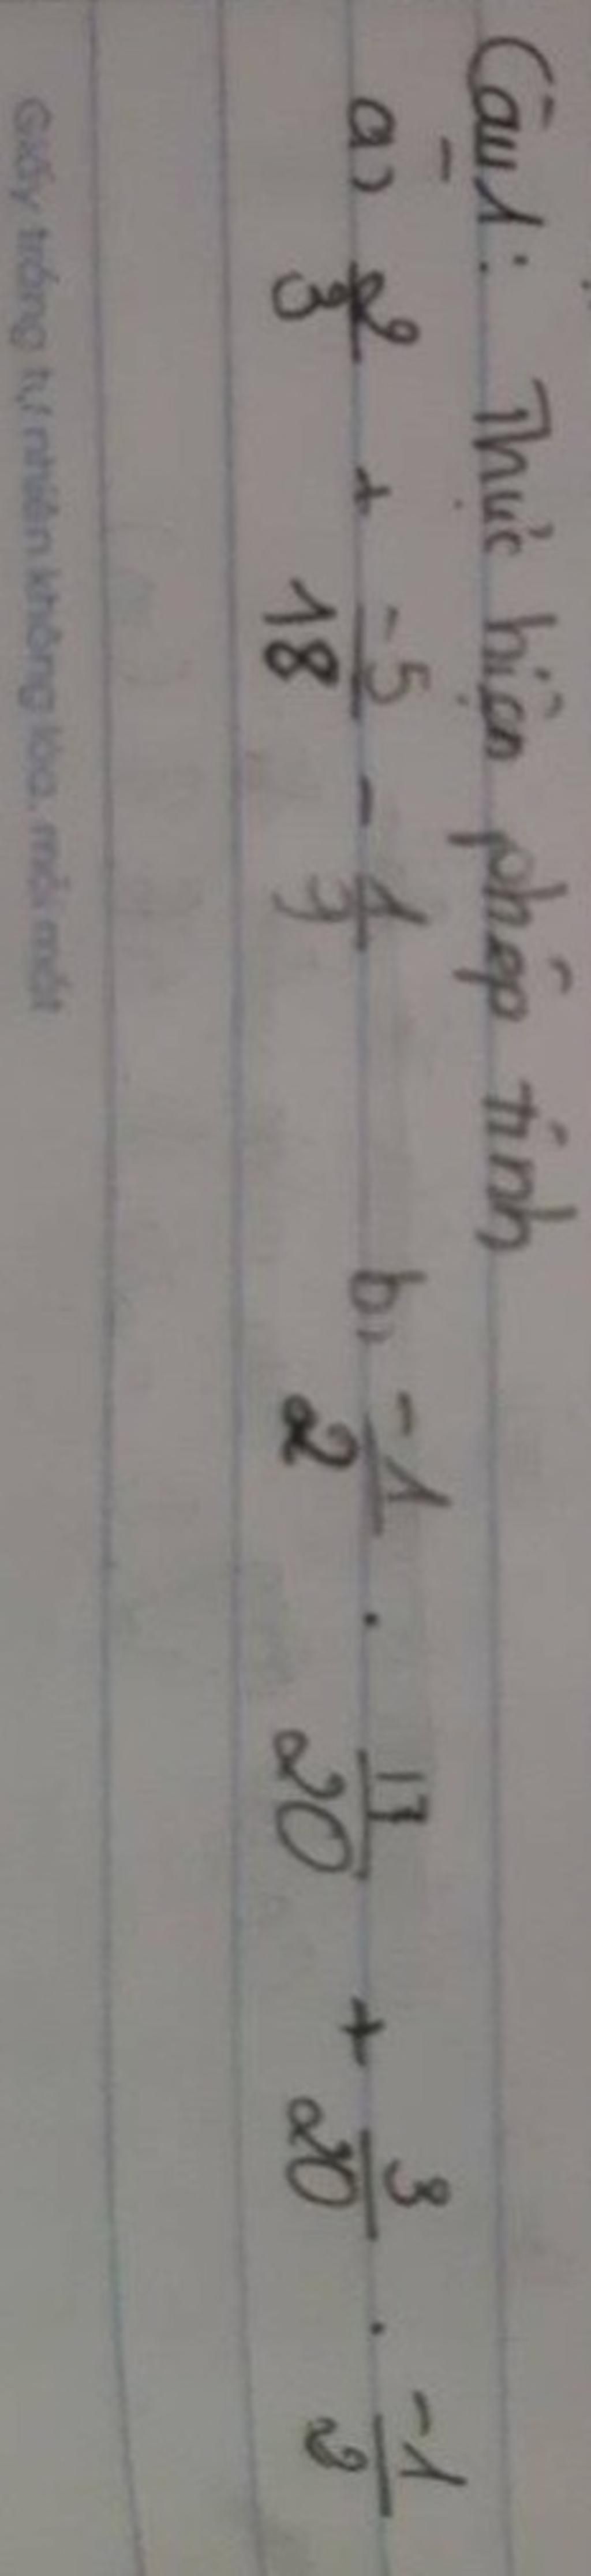 Câu 1: Thực hiện phép tính
a) 2/3 + -5/18 - 1/9 b, -1/2 . 17/20 + 3/20 . -1/2
Giấy trắng tự nhiên không lóa, mỏi mắt